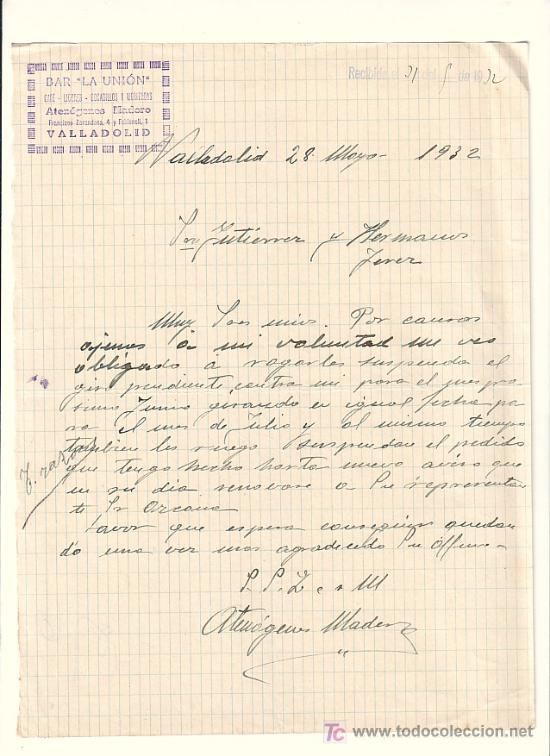 BAR "LA UNIÓN"
CAFÉ - LICORES - BOCADILLOS Y MERIENDAS
Atenógenes Madero
Francisco Zarandona, 4 y
VALLADOLID
Recibido el 31 del 5 de 1932
Valladolid 28 Mayo 1932
Sres Gutierrez y Hermanos
Jerez
Muy Sres mios. Por causas
ajenas a mi voluntad me veo
obligado á rogarles suspenda el
giro pendiente contra mi para el mes pro
simo Junio girando en igual fecha pa
ra el mes de Julio y al mismo tiempo
tambien les ruego suspendan el pedido
que tengo hecho hasta nuevo aviso que
en su dia renovare a Su representan
te Sr Orcana
Favor que espera conseguir quedan
do una vez mas agradecido Su affmo
Atenógenes Madero
TC www.todocoleccion.net